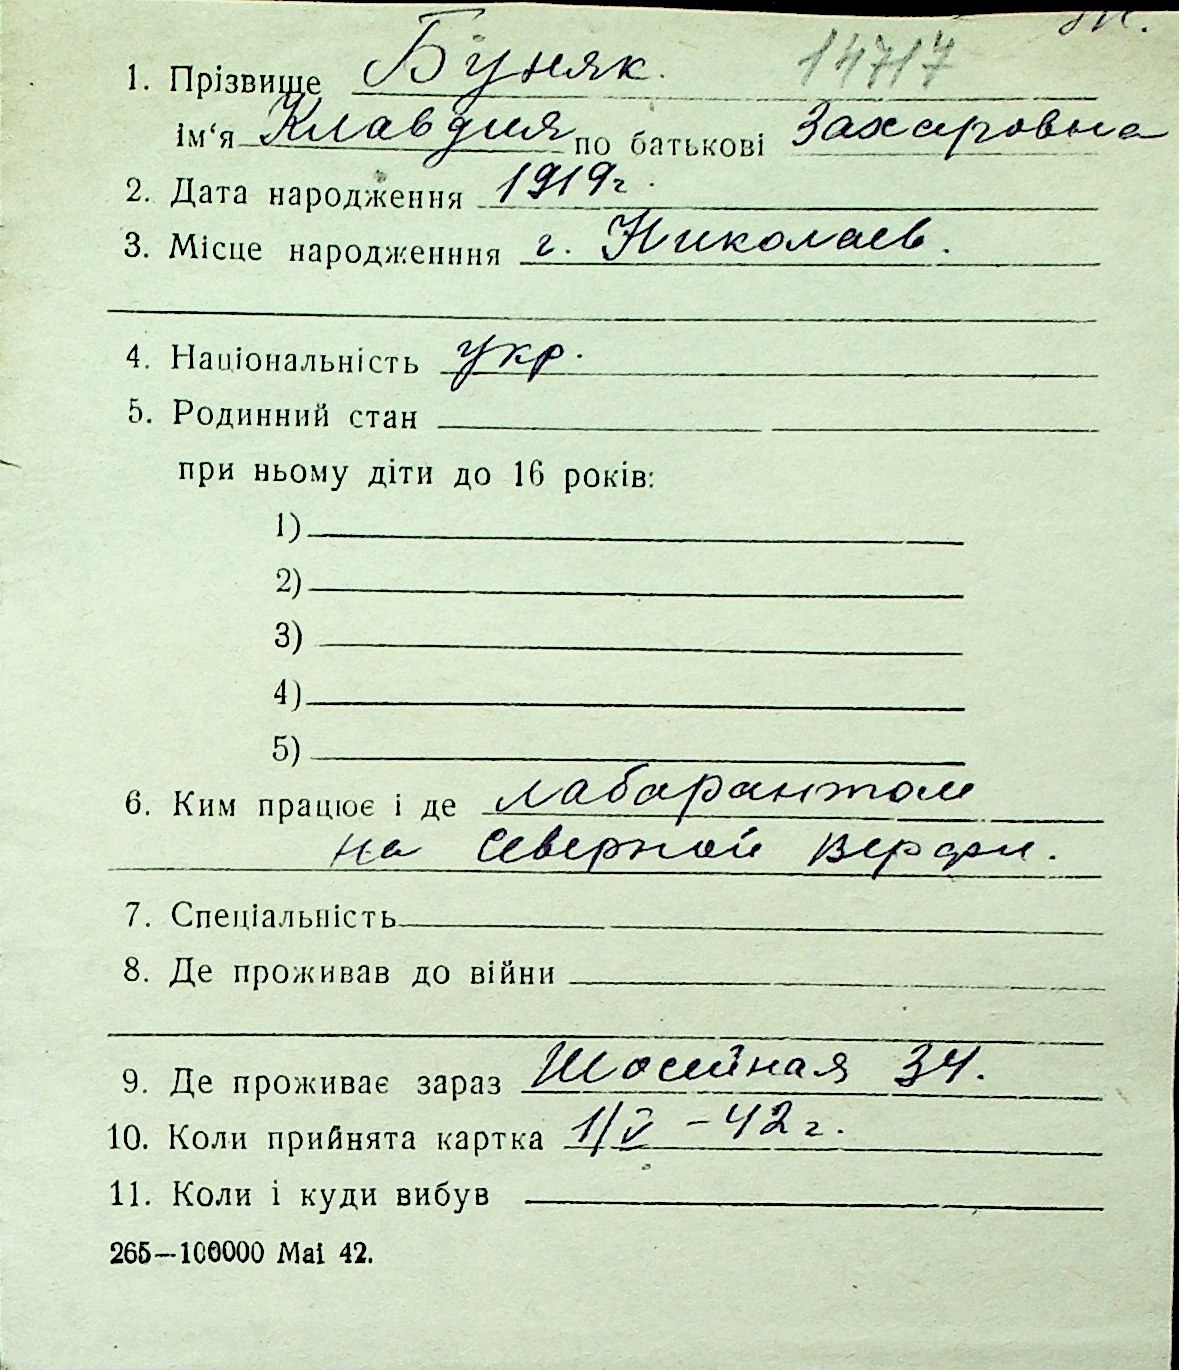 1. Прізвище Буняк. 14717
ім‘я Клавдия по батькові Захаровна
2. Дата народження 1919г.
3. Місце народженння г. Николаев.
4. Національність укр.
5. Родинний стан
при ньому діти до 16 років:
1)
2)
3)
4)
5)
6. Ким працює і де лабарантом
на Северной Верфи.
7. Спеціальність
8. Де проживав до війни
9. Де проживає зараз Шосейная 34.
10. Коли прийнята картка 1/V – 42 г.
11. Коли і куди вибув
265—100000 Mai 42.